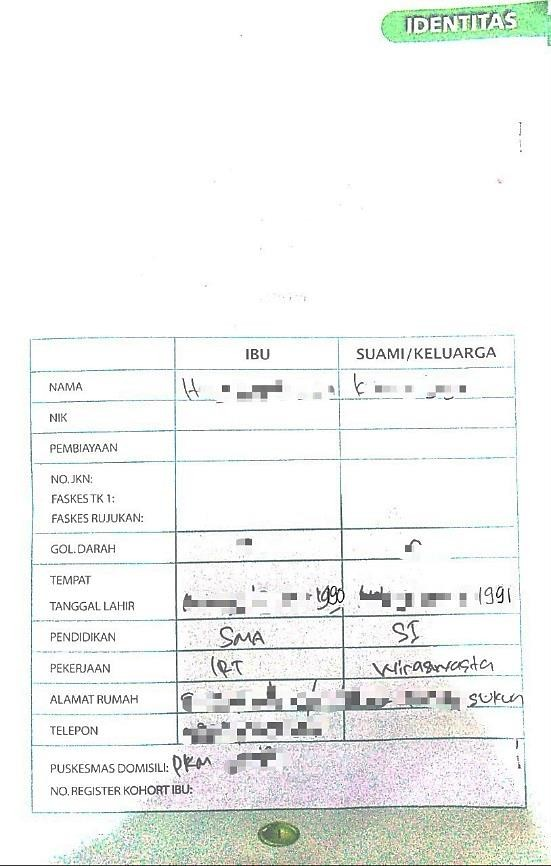 IDENTITAS
IBU SUAMI/KELUARGA
NAMA H K
NIK
PEMBIAYAAN
NO. JKN:
FASKES TK 1:
FASKES RUJUKAN:
GOL. DARAH
TEMPAT
TANGGAL LAHIR 1990 1991
PENDIDIKAN SMA S1
PEKERJAAN IRT Wiraswasta
ALAMAT RUMAH sukun
TELEPON
PUSKESMAS DOMISILI: PKM
NO. REGISTER KOHORT IBU:
1